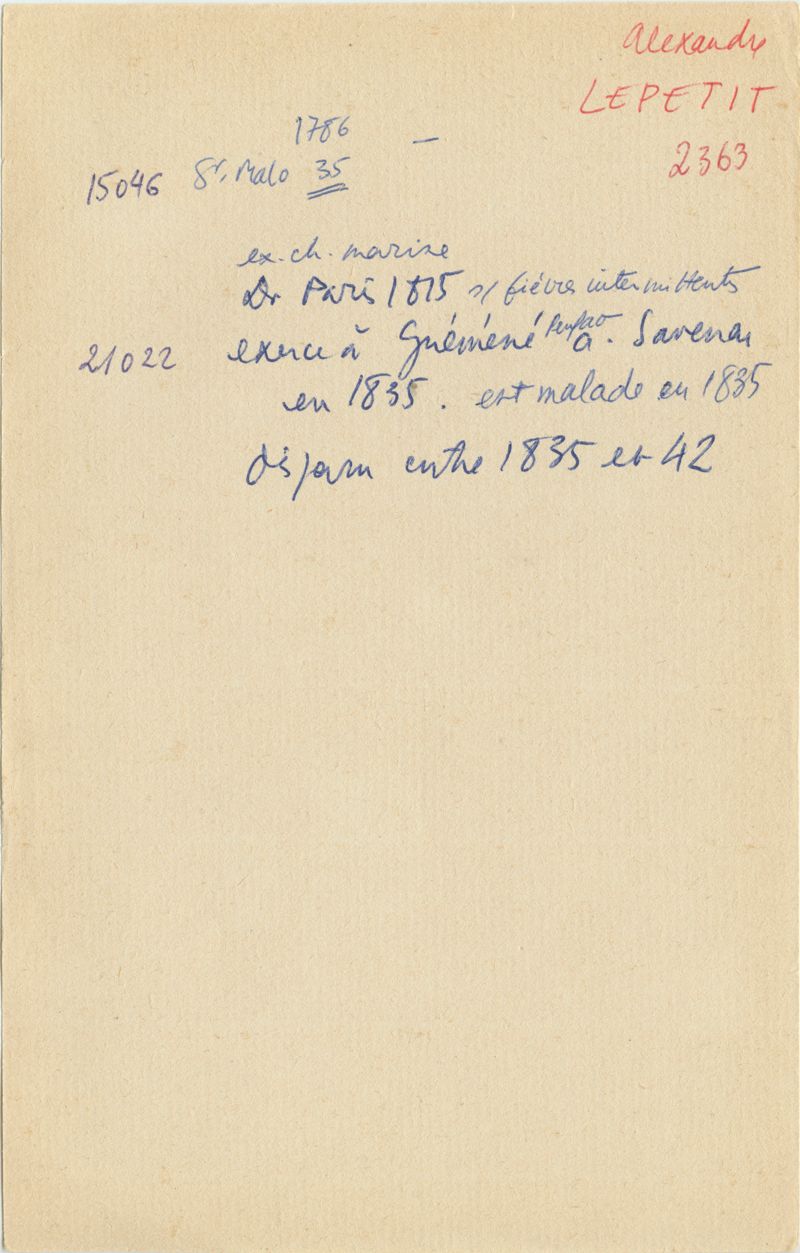 Alexandre
LEPETIT
2363
1786 —
15046 St. Malo 35
ex. ch. marine
Dr Paris 1815 s/ fièvres intermittents
21022 exerce à Guéméné Penfao a. Savenay
en 1835. est malade en 1835
disparu entre 1835 et 42